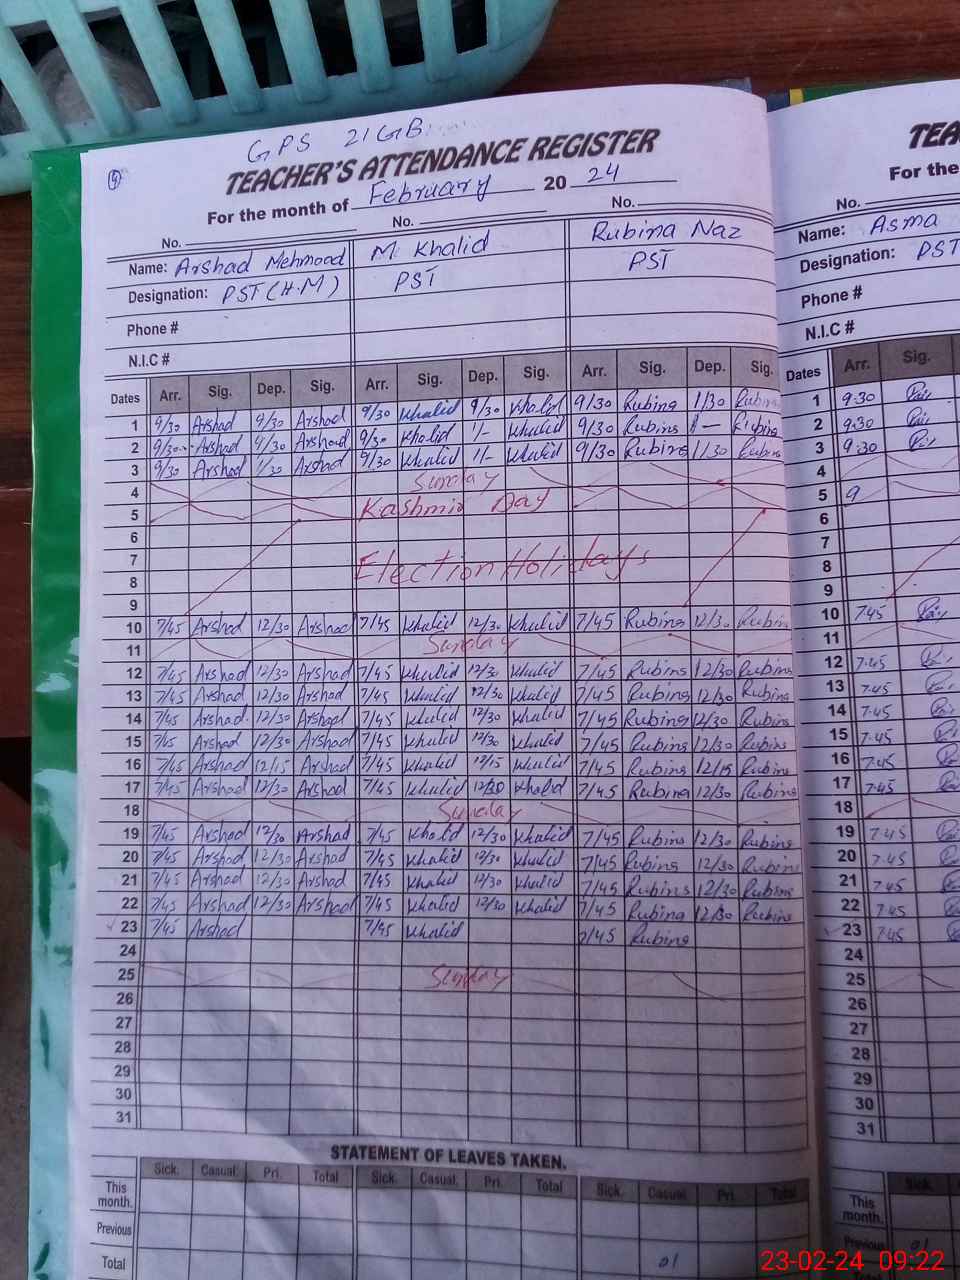 GPS 21GB
TEACHER'S ATTENDANCE REGISTER
For the month of February 20 24
No. No. No.
Name: Arshad Mehmood M. Khalid Rubina Naz
Designation: PST (H.M) PST PST
Phone #
N.I.C #
Dates Arr. Sig. Dep. Sig. Arr. Sig. Dep. Sig. Arr. Sig. Dep. Sig.
1 9/30 Arshad Arshad 9/30 Khalid Khalid 9/30 Rubina 1/30 Rubina
2 9/30 Arshad Arshad 9/30 Khalid 1/- Khalid 9/30 Rubina Rubina
3 9/30 Arshad 1/30 Arshad 9/30 Khalid 1/- Khalid 9/30 Rubina 1/30 Rubina
4 Sunday
5 Kashmir Day
6
7 Election Holidays
8
9
10 7/45 Arshad 12/30 Arshad 7/45 Khalid 12/30 Khalid 7/45 Rubina 12/30 Rubina
11 Sunday
12 7/45 Arshad 12/30 Arshad 7/45 Khalid 12/30 Khalid 7/45 Rubina 12/30 Rubina
13 7/45 Arshad 12/30 Arshad 7/45 Khalid 12/30 Khalid 7/45 Rubina 12/30 Rubina
14 7/45 Arshad 12/30 Arshad 7/45 Khalid 12/30 Khalid 7/45 Rubina 12/30 Rubina
15 7/45 Arshad 12/30 Arshad 7/45 Khalid 12/30 Khalid 7/45 Rubina 12/30 Rubina
16 7/45 Arshad 12/15 Arshad 7/45 Khalid 12/15 Khalid 7/45 Rubina 12/15 Rubina
17 7/45 Arshad 12/30 Arshad 7/45 Khalid 12/30 Khalid 7/45 Rubina 12/30 Rubina
18 Sunday
19 7/45 Arshad 12/30 Arshad 7/45 Khalid 12/30 Khalid 7/45 Rubina 12/30 Rubina
20 7/45 Arshad 12/30 Arshad 7/45 Khalid 12/30 Khalid 7/45 Rubina 12/30 Rubina
21 7/45 Arshad 12/30 Arshad 7/45 Khalid 12/30 Khalid 7/45 Rubina 12/30 Rubina
22 7/45 Arshad 12/30 Arshad 7/45 Khalid 12/30 Khalid 7/45 Rubina 12/30 Rubina
23 7/45 Arshad 7/45 Khalid 7/45 Rubina
24
25 Sunday
26
27
28
29
30
31
STATEMENT OF LEAVES TAKEN.
Sick. Casual. Pri. Total Sick. Casual. Pri. Total Sick. Casual. Pri. Total
This month.
Previous
Total 01
TEA
For the
No.
Name: Asma
Designation: PST
Phone #
N.I.C #
Dates Arr. Sig.
1 9:30
2 9:30
3 9:30
4
5 9
6
7
8
9
10 7:45
11
12 7:45
13 7:45
14 7:45
15 7:45
16 7:45
17 7:45
18
19 7:45
20 7:45
21 7:45
22 7:45
23 7:45
24
25
26
27
28
29
30
31
Sick.
This month.
Previous 01
Total
23-02-24 09:22